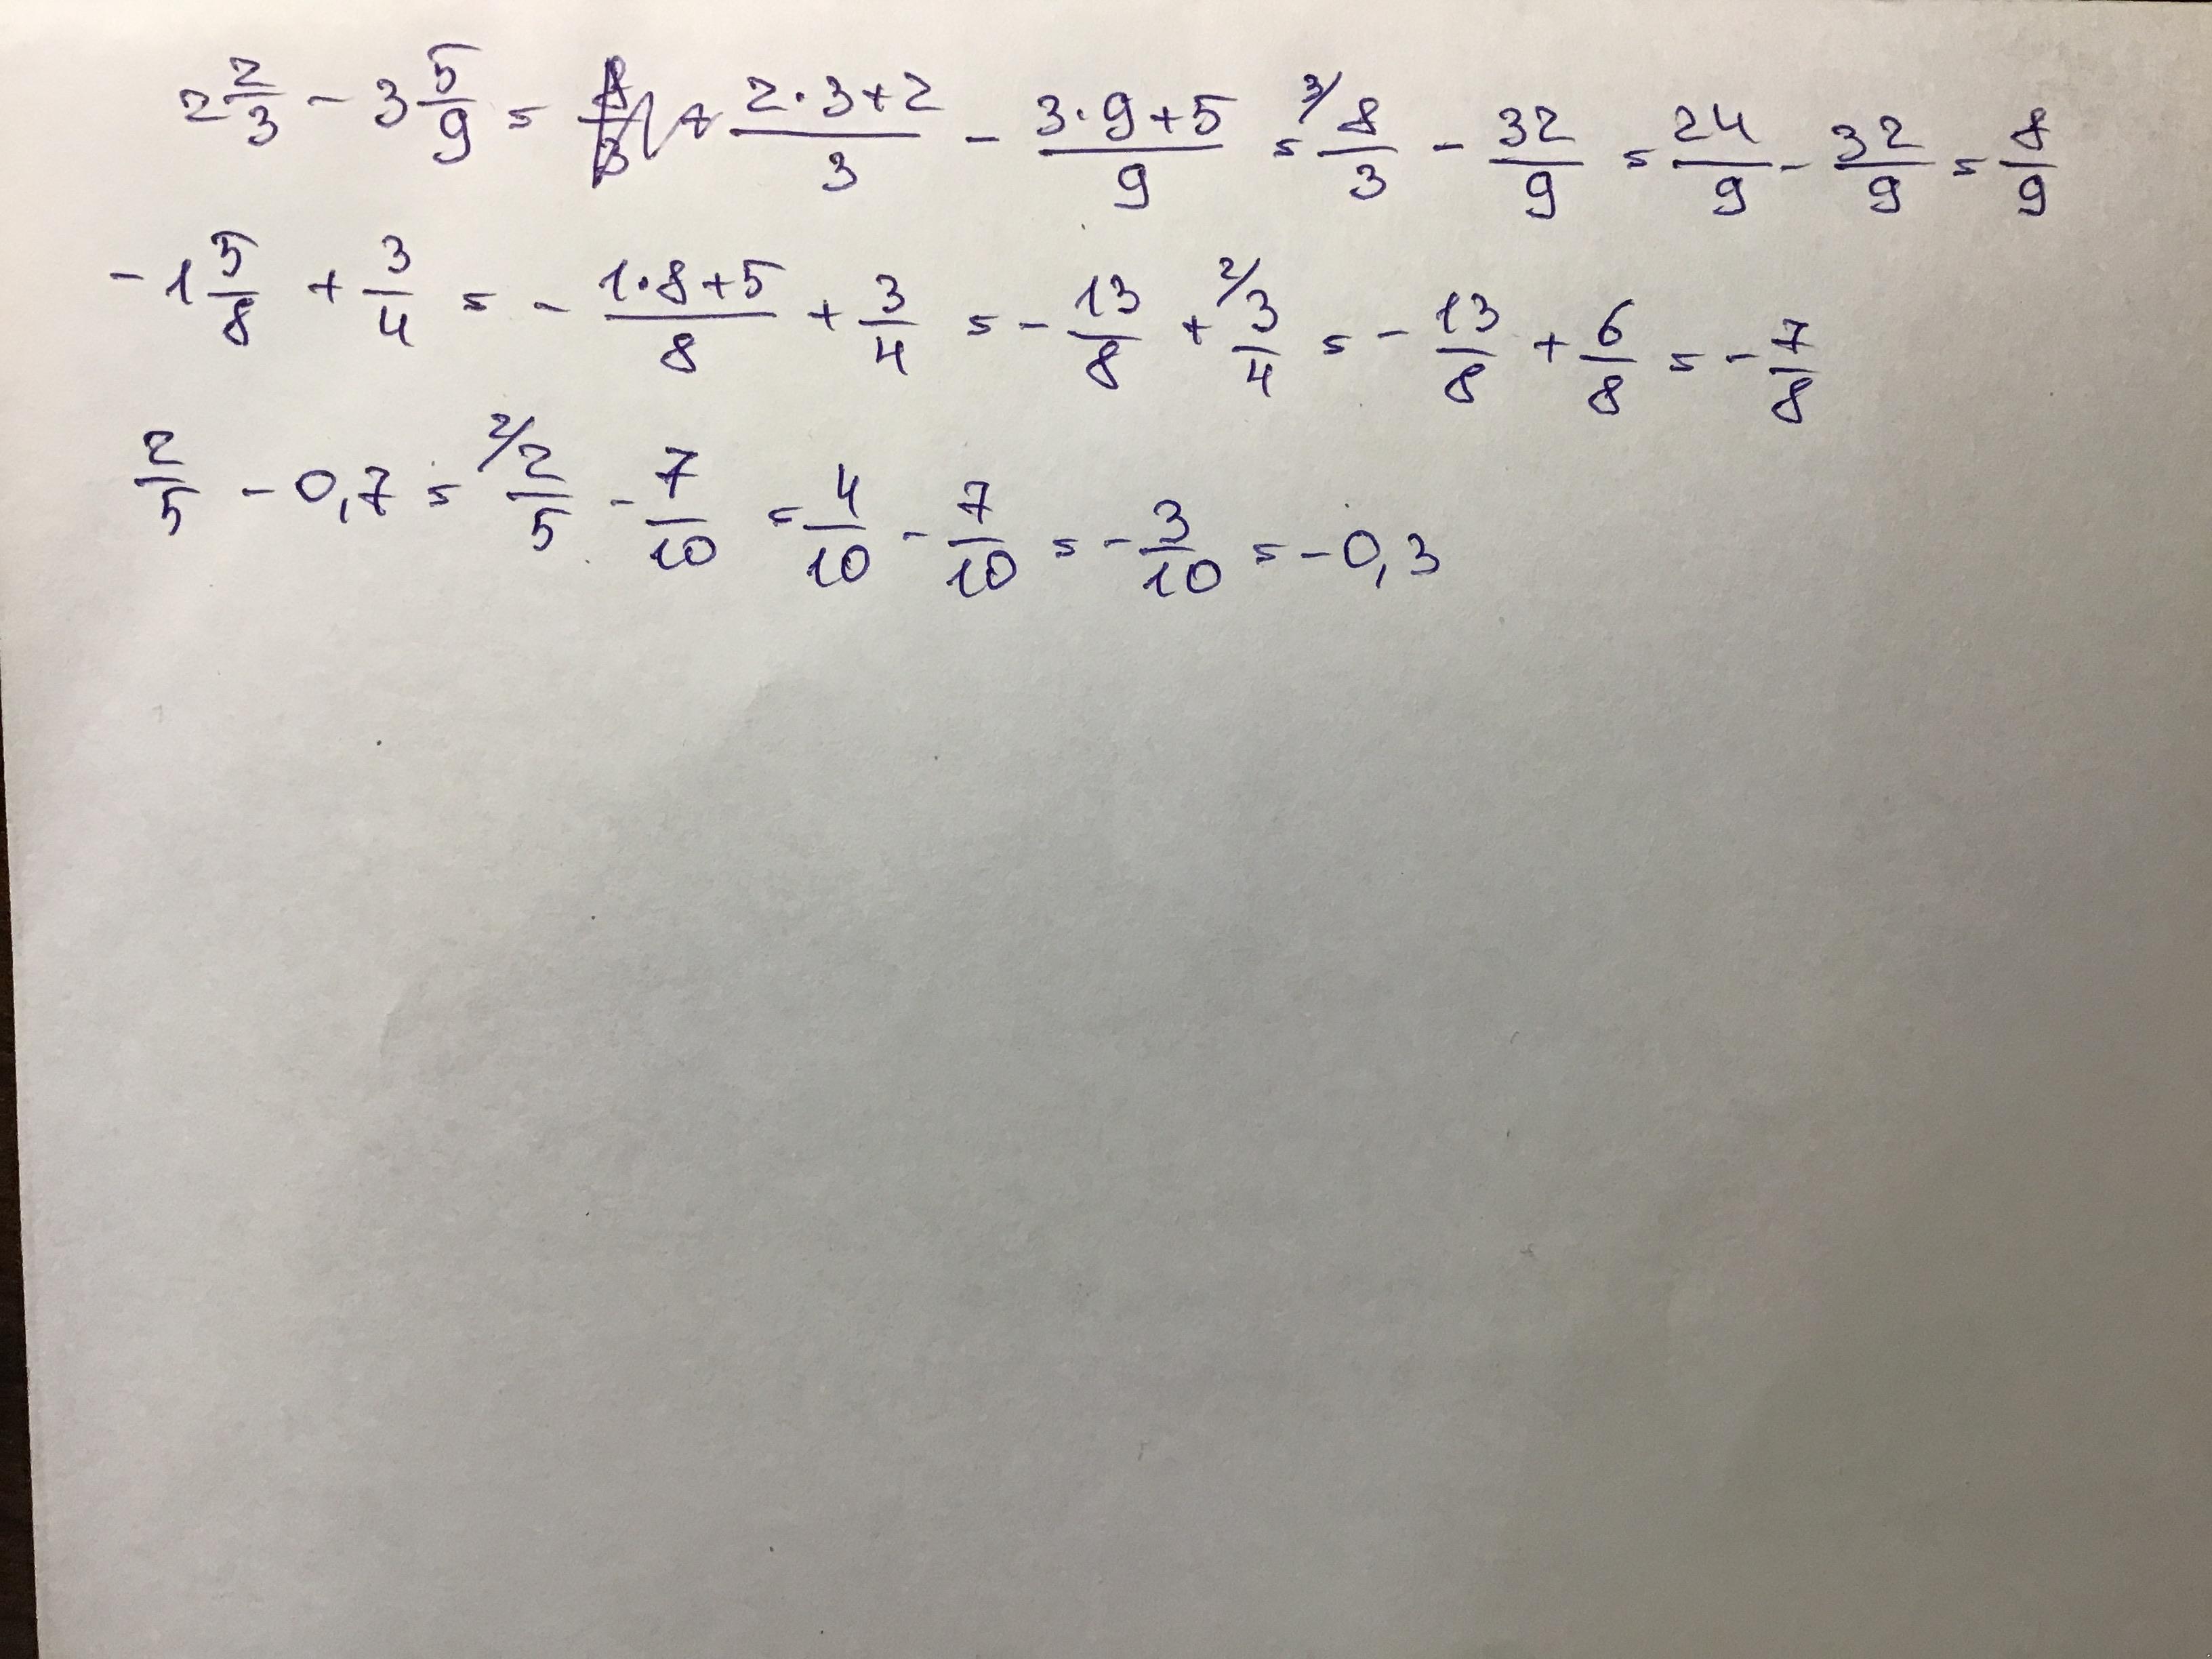 2 2/3 - 3 5/9 = (2·3+2)/3 - (3·9+5)/9 = 3/ 8/3 - 32/9 = 24/9 - 32/9 = 8/9
-1 5/8 + 3/4 = - (1·8+5)/8 + 3/4 = - 13/8 + 2/ 3/4 = - 13/8 + 6/8 = - 7/8
2/5 - 0,7 = 2/ 2/5 - 7/10 = 4/10 - 7/10 = - 3/10 = -0,3